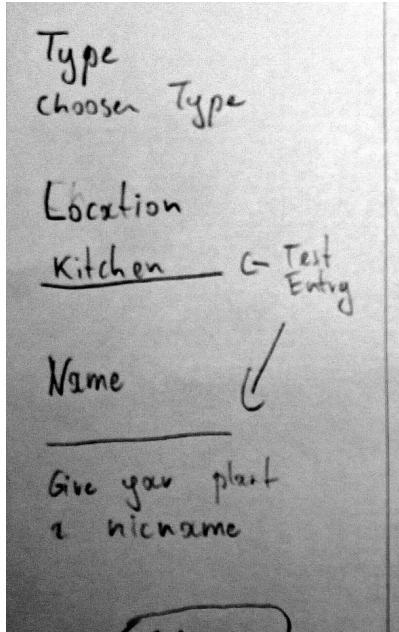 Type
Chosen Type
Location
Kitchen
Test
Entry
Name
Give your plant
a nicname